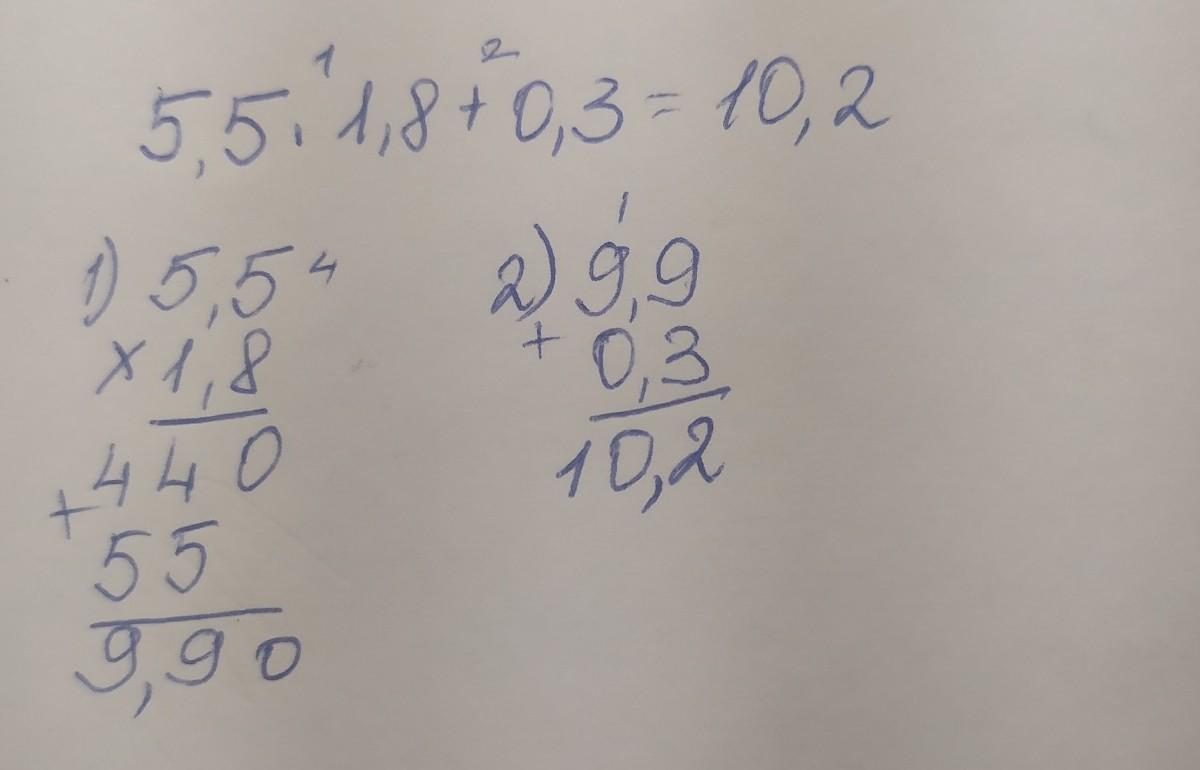 1 2
5,5 · 1,8 + 0,3 = 10,2
1) 5,5 4
× 1,8
440
+
55
9,90
1
2) 9,9
+ 0,3
10,2